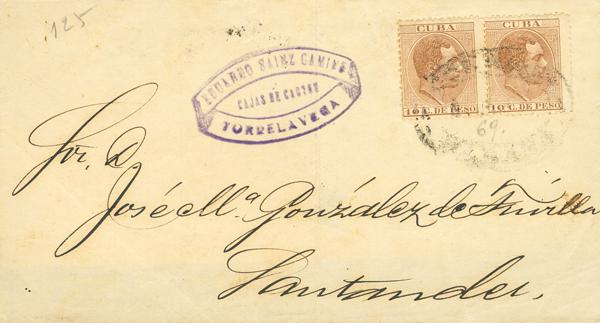 125
EDUARDO SAINZ CAMINO
CAJAS DE CARTON
TORRELAVEGA
CUBA
10 C. DE PESO
CUBA
10 C. DE PESO
69.
Sor. D.
José M.ª González de Trevilla
Santander.